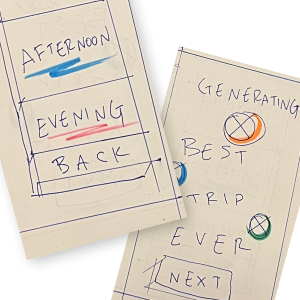 AFTERNOON
EVENING
BACK
GENERATING
BEST
TRIP
EVER
NEXT